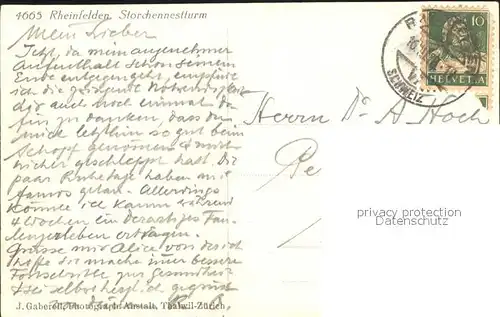 4665 Rheinfelden. Storchennestturm
Mein Lieber
Jetzt, da mein angenehmer
Aufenthalt schon seinem
Ende entgegengeht, empfinde
ich die Notwendigkeit
dir auch noch einmal da
für zu danken, dass du
mich letzthin so gut beim
Schopf genommen & mit
geschleppt hast. Die
paar Ruhetage haben mir
famos getan. Allerdings
könnte ich kaum während
4 Wochen ein derartiges Fau
lenzerleben ertragen.
Grüsse mir Alice von
hoffe sie mache immer bessere
Fortschritte zur Gesundheit
Sei selbst herzl. gegrüsst
J. Gaberell, Photograph. Anstalt, Thalwil-Zürich.
10
HELVETIA
SCHWEIZ
Herrn Dr. A. Hoch
privacy protection
Datenschutz